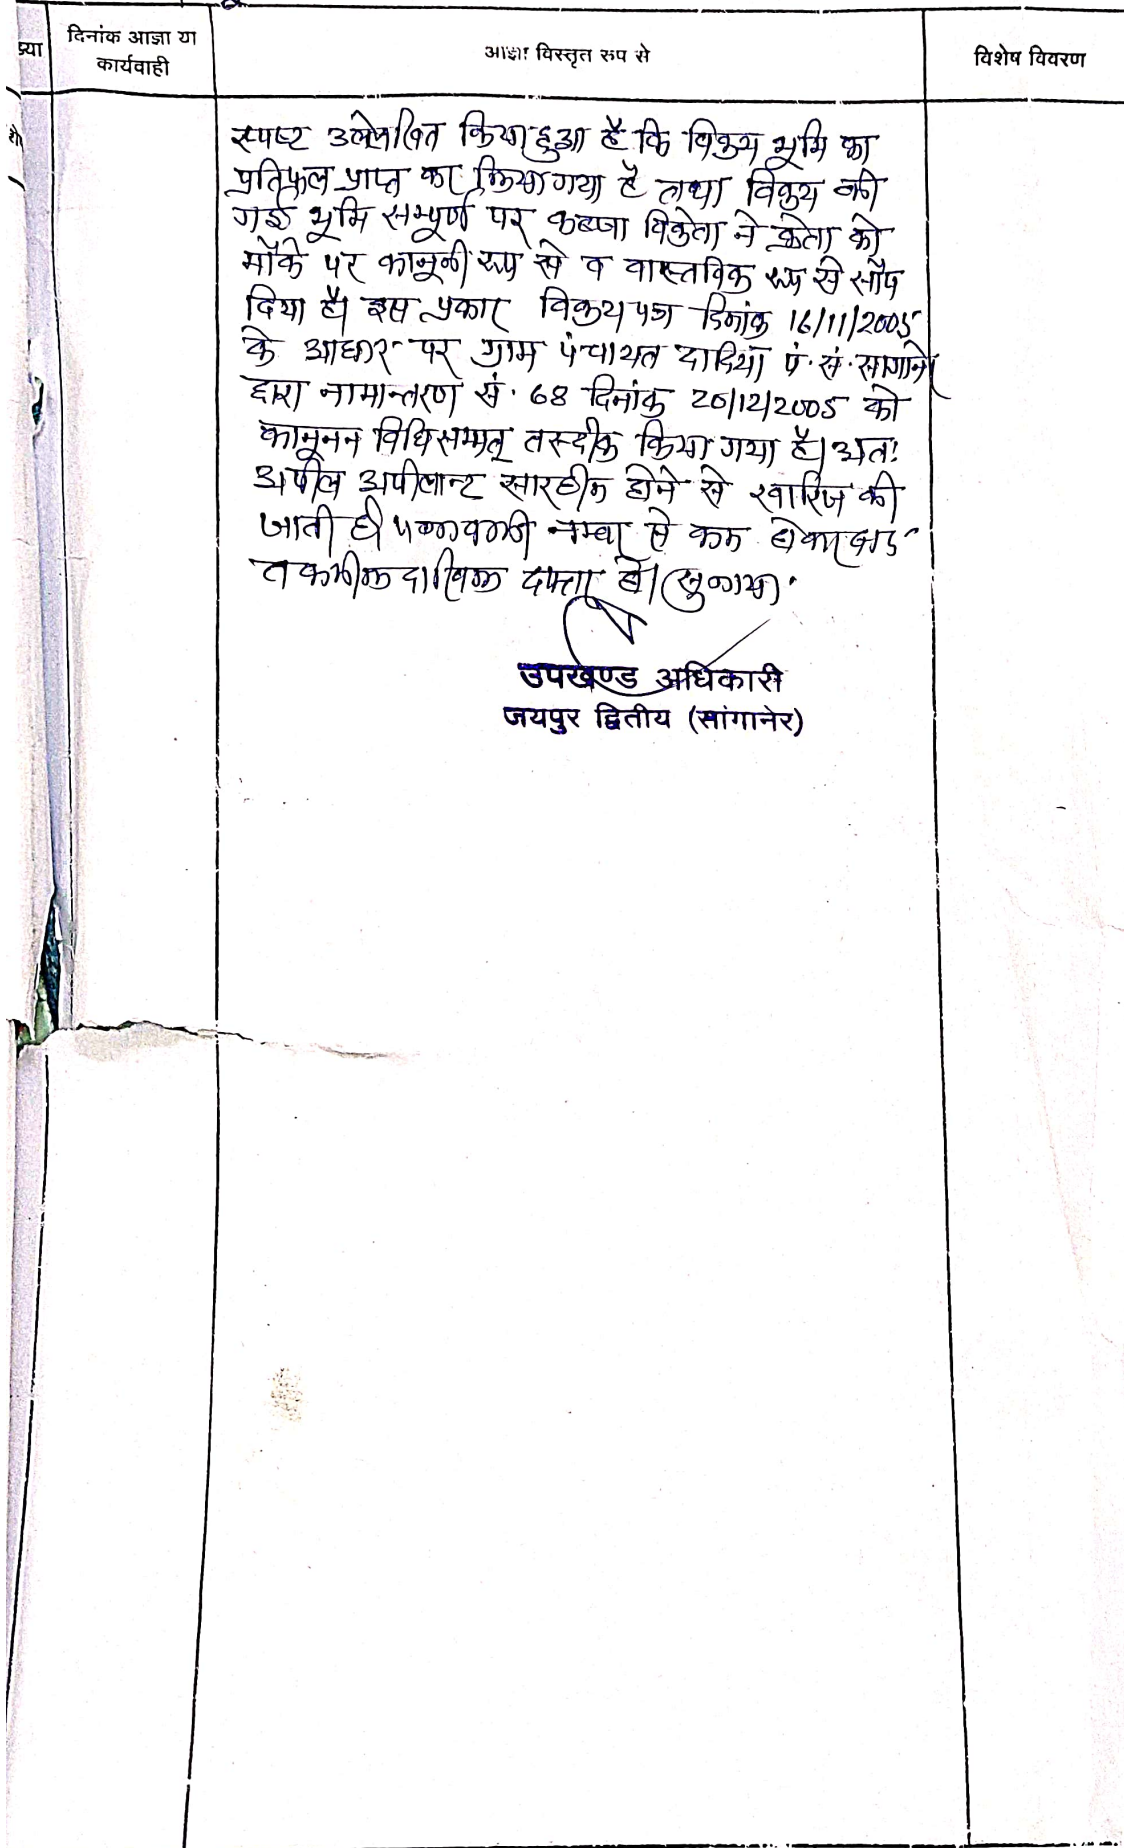 ख्या
दिनांक आज्ञा या
कार्यवाही
आज्ञा विस्तृत रूप से
विशेष विवरण
स्पष्ट उल्लेखित किया हुआ है कि विक्रय भूमि का
प्रतिफल प्राप्त कर लिया गया है तथा विक्रय की
गई भूमि सम्पूर्ण पर कब्जा विक्रेता ने क्रेता को
मौके पर कानूनी रूप से व वास्तविक रूप से सौंप
दिया है। इस प्रकार विक्रय पत्र दिनांक 16/11/2005
के आधार पर ग्राम पंचायत दादिया पं. सं. सांगानेर
द्वारा नामान्तरण सं. 68 दिनांक 20/12/2005 को
कानूनन विधिसम्मत तस्दीक किया गया है। अतः
अपील अपीलान्ट सारहीन होने से खारिज की
जाती है। पत्रावली नम्बर से कम होकर बाद
तकमील दाखिल दफ्तर हो।
उपखण्ड अधिकारी
जयपुर द्वितीय (सांगानेर)